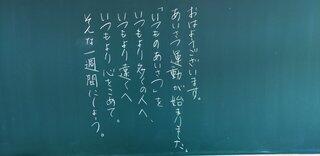 おはようございます。
あいさつ運動が始まりました。
「いつものあいさつ」を
いつもより多くの人へ、
いつもより遠くへ
いつもより心をこめて。
そんな一週間にしよう。